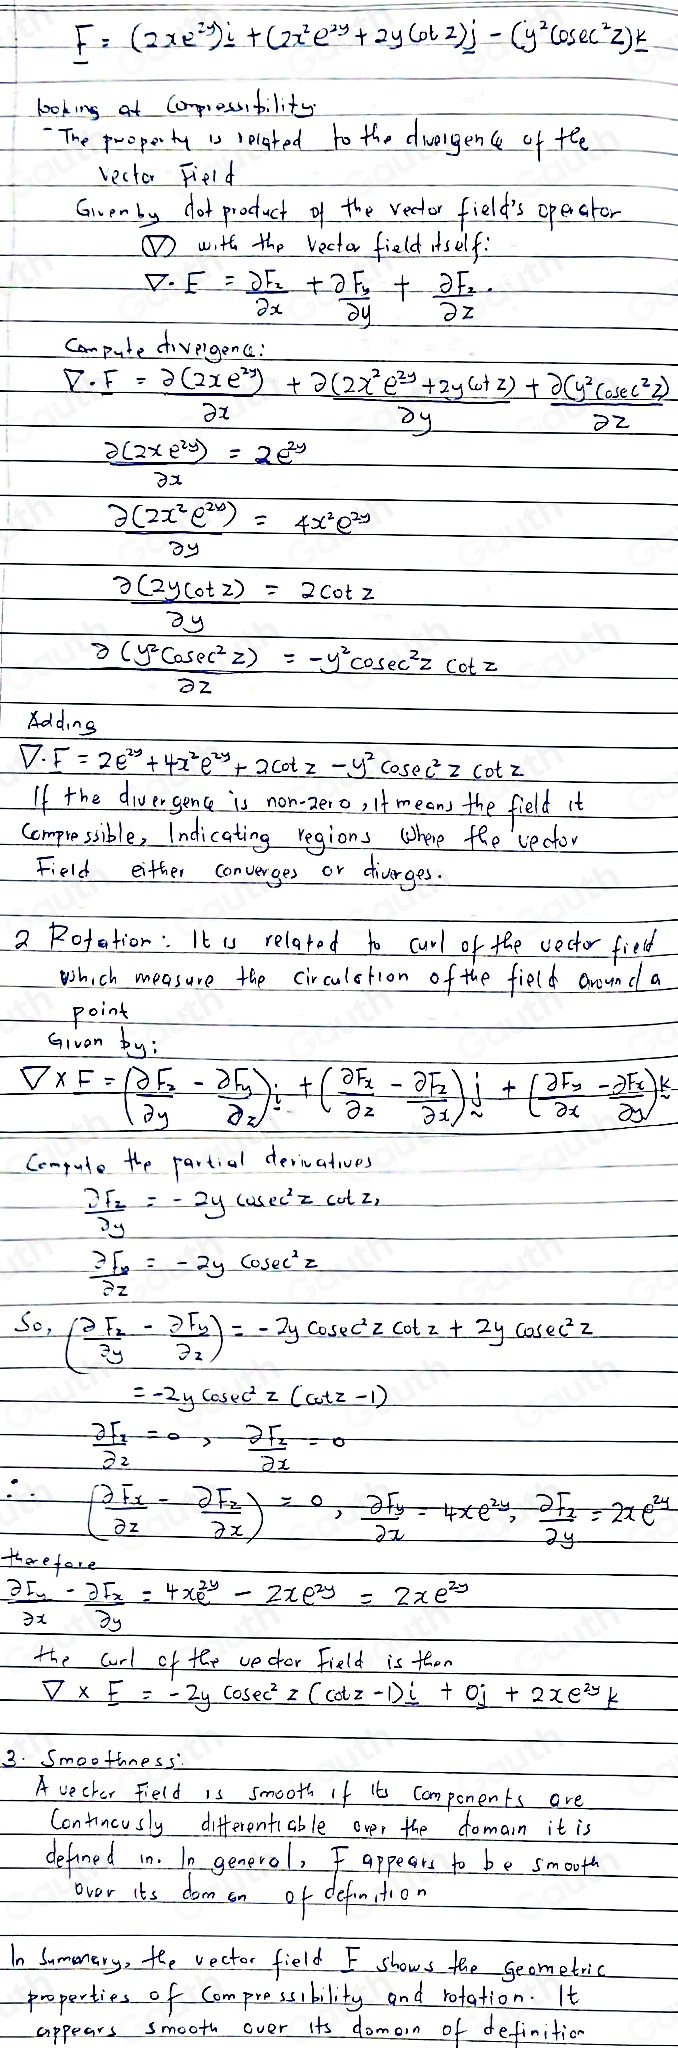 F = (2xe^{2y})i + (2x²e^{2y} + 2y cot z)j - (y² cosec² z)k
looking at Compressibility.
- The property is related to the divergence of the
vector Field
Given by dot product of the vector field's operator
(∇) with the vector field itself:
∇·F = ∂Fz/∂x + ∂Fy/∂y + ∂Fz/∂z.
Compute divergence:
∇·F = ∂(2xe^{2y})/∂x + ∂(2x²e^{2y} + 2y cot z)/∂y + ∂(y² cosec² z)/∂z
∂(2xe^{2y})/∂x = 2e^{2y}
∂(2x²e^{2y})/∂y = 4x²e^{2y}
∂(2y cot z)/∂y = 2 cot z
∂(y² cosec² z)/∂z = -y² cosec² z cot z
Adding
∇·F = 2e^{2y} + 4x²e^{2y} + 2cot z - y² cosec² z cot z
If the divergence is non-zero, it means the field it
compressible, Indicating regions where the vector
Field either converges or diverges.
2 Rotation: It is related to curl of the vector field
which measure the circulation of the field around a
point
Given by:
∇ × F = (∂Fz/∂y - ∂Fy/∂z)i + (∂Fx/∂z - ∂Fz/∂x)j + (∂Fy/∂x - ∂Fx/∂y)k
Compute the partial derivatives
∂Fz/∂y = -2y cosec² z cot z,
∂Fy/∂z = -2y cosec² z
So, (∂Fz/∂y - ∂Fy/∂z) = -2y cosec² z cot z + 2y cosec² z
= -2y cosec² z (cot z - 1)
∂Fx/∂z = 0, ∂Fz/∂x = 0
∴ (∂Fx/∂z - ∂Fz/∂x) = 0, ∂Fy/∂x = 4xe^{2y}, ∂Fz/∂y = 2xe^{2y}
therefore
∂Fy/∂x - ∂Fx/∂y = 4xe^{2y} - 2xe^{2y} = 2xe^{2y}
the curl of the vector Field is then
∇ × F = -2y cosec² z (cot z - 1)i + 0j + 2xe^{2y} k
3. Smoothness:
A vector Field is smooth if its components are
Continously differentiable over the domain it is
defined in. In general, F appears to be smooth
over its domain of definition
In Summary, the vector field F shows the geometric
properties of Compressibility and rotation. It
appears smooth over its domain of definition